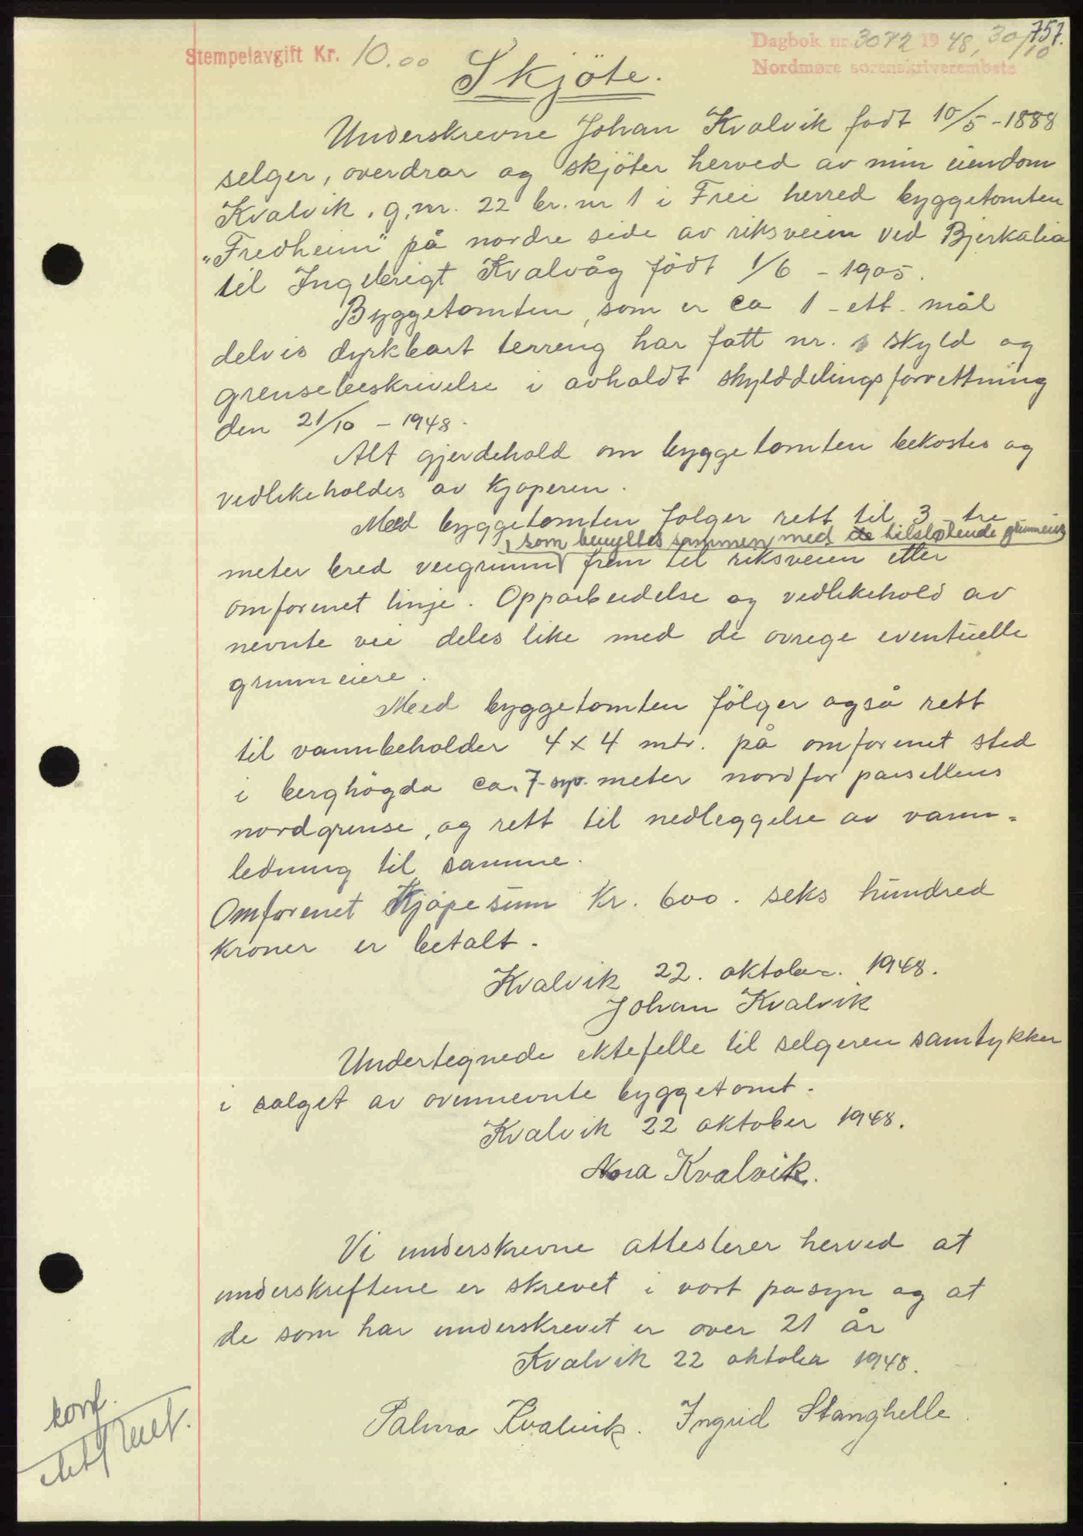 757.
Stempelavgift Kr. 10.00
Dagbok nr. 3072 19 48, 30/10
Nordmøre sorenskriverembete
Skjöte.
Underskrevne Johan Kvalvik født 10/5 - 1888
selger, overdrar og skjöter herved av min eiendom
Kvalvik, g.nr. 22 br. nr 1 i Frei herred byggetomten
"Fredheim" på nordre side av riksveien ved Bjerkalia
til Ingebrigt Kvalvåg födt 1/6 - 1905.
Byggetomten, som er ca 1 - ett - mål
delvis dyrkbart terreng har fått nr. skyld og
grensebeskrivelse i avholdt skylddelingsforrettning
den 21/10 - 1948.
Alt gjerdehold om byggetomten bekostes og
vedlikeholdes av kjøperen.
Med byggetomten følger rett til 3 - tre
, som benyttes sammen med de tilstøtende grunneiere
meter bred veigrunn frem til riksveien etter
omforenet linje. Opparbeidelse og vedlikehold av
nevnte vei deles like med de øvrege eventuelle
grunneiere.
Med byggetomten fölger også rett
til vannbeholder 4 x 4 mtr. på omforenet sted
i berghögda ca. 7-syv- meter nordfor parsellens
nordgrense, og rett til nedleggelse av vann-
ledning til samme.
Omforenet Kjøpesum kr. 600. seks hundred
kroner er betalt.
Kvalvik 22. oktober. 1948.
Johan Kvalvik
Undertegnede ektefelle til selgeren samtykker
i salget av ovennevnte byggetomt.
Kvalvik 22 oktober 1948.
Nora Kvalvik.
Vi underskrevne attesterer herved at
underskriftene er skrevet i vort påsyn og at
de som har underskrevet er over 21 år
Kvalvik 22 oktober 1948.
Palma Kvalvik. Ingrid Stanghelle.
konf.